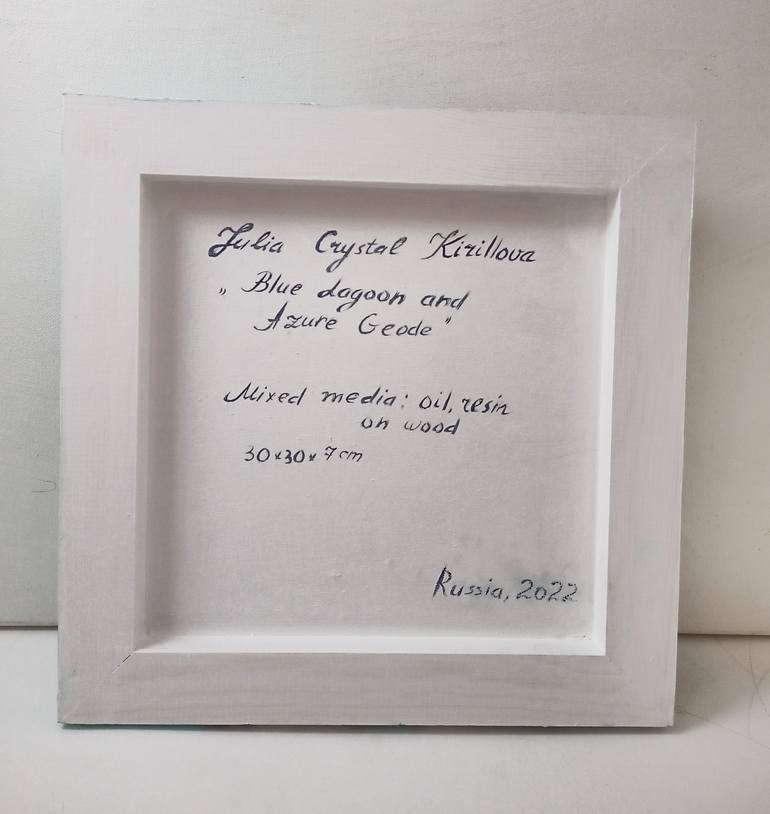 Julia Crystal Kirillova
„ Blue Lagoon and
Azure Geode"
Mixed media: oil, resin
on wood
30x30x7cm
Russia, 2022